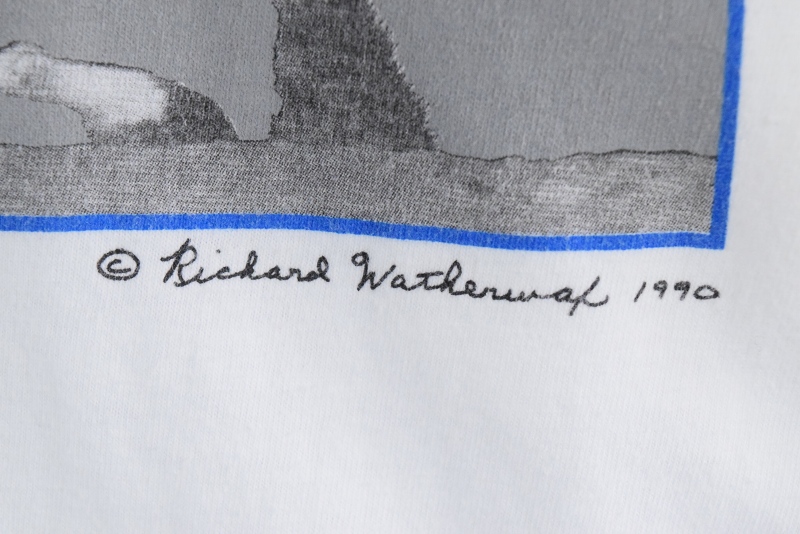 © Richard Watherwax 1990